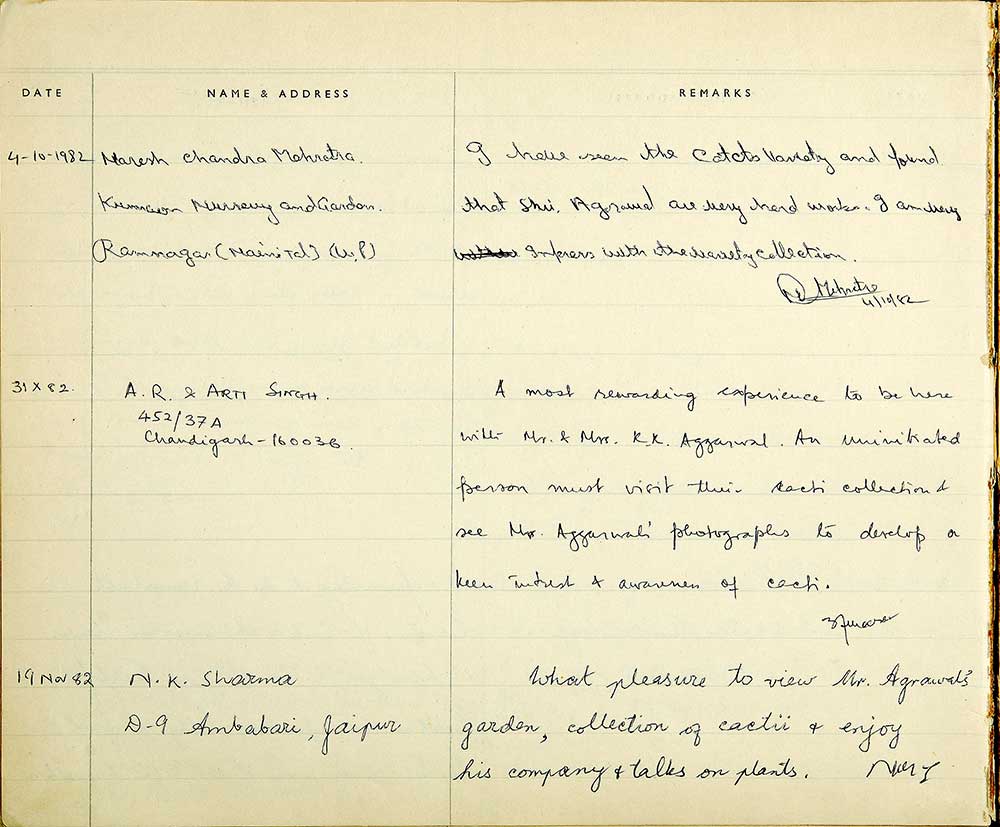 DATE NAME & ADDRESS REMARKS
4-10-1982 Naresh Chandra Mehrotra. I have seen the Catcts Variety and found
Kumaon Nursery and Garden. that Shri. Agrawal are very hard work. I am very
Ramnagar (Nainital) (U.P) Impress with the variety collection.
Mehrotra
4/10/82
31 X 82. A.R. & ARTI SINGH. A most rewarding experience to be here
452/37A
Chandigarh-160036. with Mr. & Mrs. K.K. Aggarwal. An uninitiated
person must visit their cacti collection &
see Mr. Aggarwal's photographs to develop a
keen interest & awareness of cacti.
19 Nov 82 N.K. Sharma What pleasure to view Mr. Agrawal's
D-9 Ambabari, Jaipur garden, collection of cactii & enjoy
his company & talks on plants.